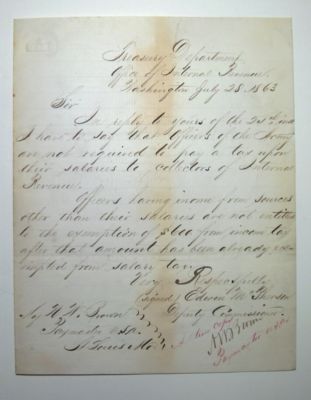 Treasury Department
Office of Internal Revenue
Washington July 28. 1863
Sir
In reply to yours of the 21st inst
I have to say that Officers of the Army
are not required to pay a tax upon
their salaries to Collectors of Internal
Revenue.
Officers having income from sources
other than their salaries are not entitled
to the exemption of $600 from income tax
after that amount has been already ex-
empted from salary tax.
Very Respectfully
(signed) Edwin
Deputy Commissioner
Maj N W Brown
Paymaster USA
St Louis Mo
A true copy
N W Brown
Paymaster USA